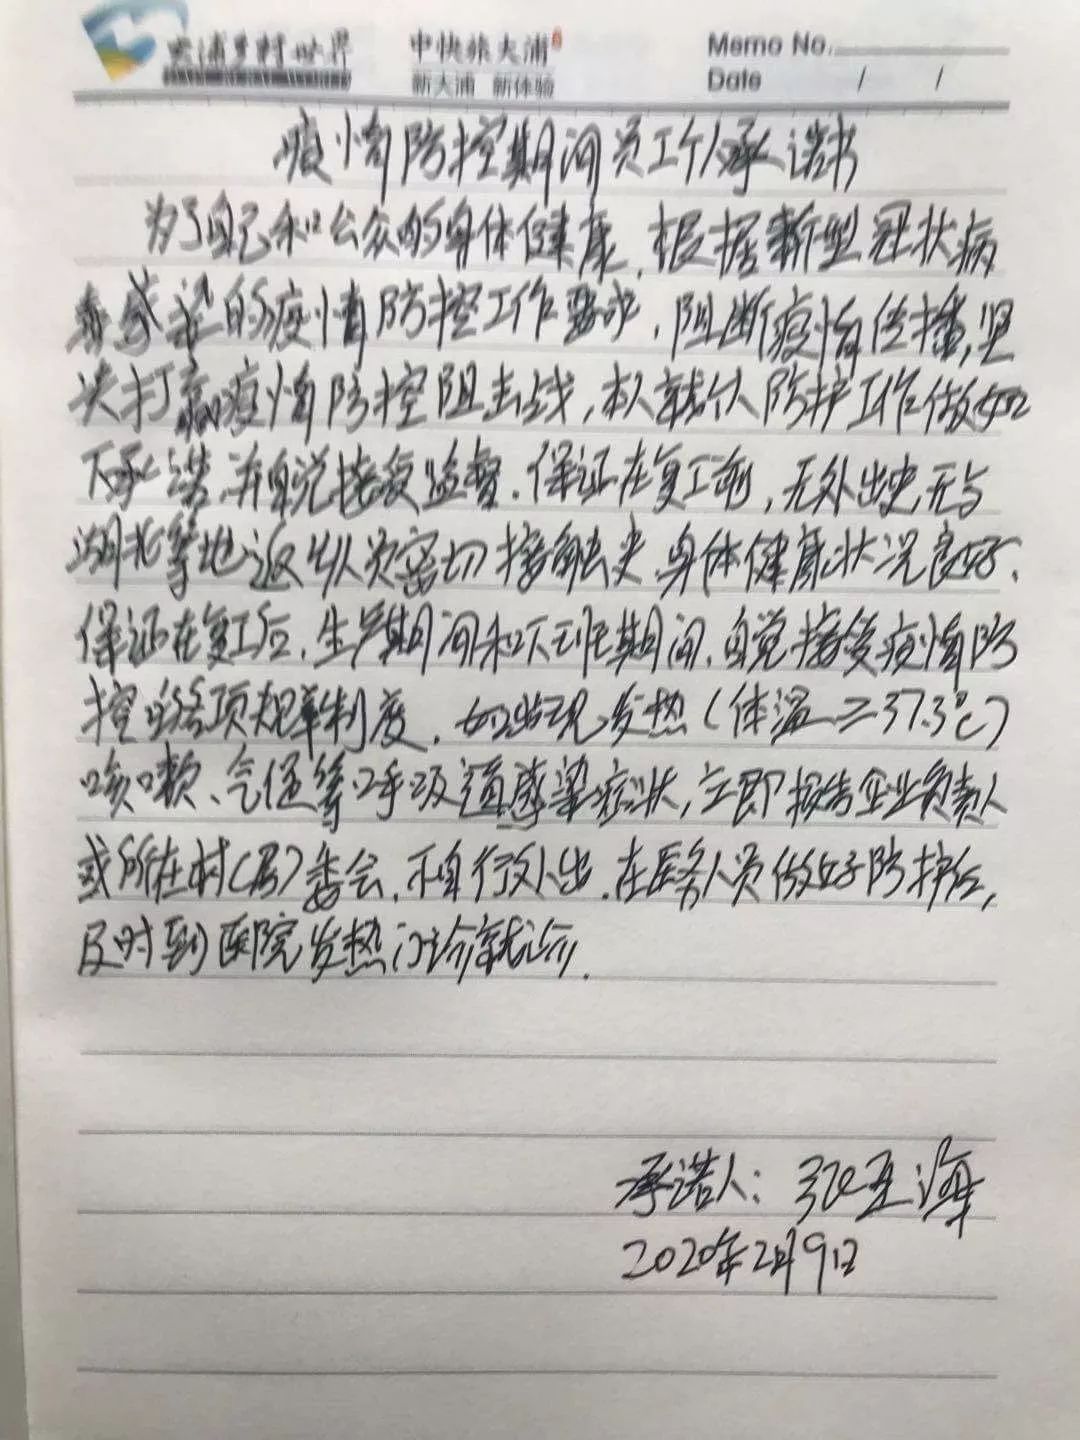 大浦乡村世界 中快旅大浦 Memo No.
新大浦 新体验 Date / /
疫情防控期间员工个人承诺书
为了自己和公众的身体健康,根据新型冠状病
毒感染的疫情防控工作要求,阻断疫情传播,坚
决打赢疫情防控阻击战,本人就个人防护工作做如
下承诺,并自觉接受监督.保证在复工前,无外出史,无与
湖北等地返乡人员密切接触史.身体健康状况良好、
保证在复工后,生产期间和下班期间,自觉接受疫情防
控的各项规章制度.如出现发热(体温≥37.3℃)
咳嗽、气促等呼吸道感染症状,立即报告企业负责人
或所在村(居)委会,不自行外出.在医务人员做好防护后,
及时到医院发热门诊就诊.
承诺人: 张亚海
2020年2月9日